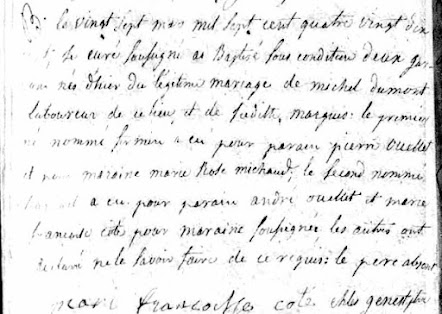 B. le vingt sept mars mil sept cent quatre vingt dix
je curé soussigné ai Baptisé sous condition deux gar
nés d'hier du légitime mariage de michel dumont
laboureur de ce lieu et de judith marquis: le premier
né nommé firmin a eu pour parain pierre ouellet
et pour maraine marie Rose michaud, le second nommé
a eu pour parain andré ouellet et marie
francoise coté pour maraine soussignée les autres ont
declaré ne le savoir faire de ce requis: le pere absent
marie francoisse coté chls genest ptre